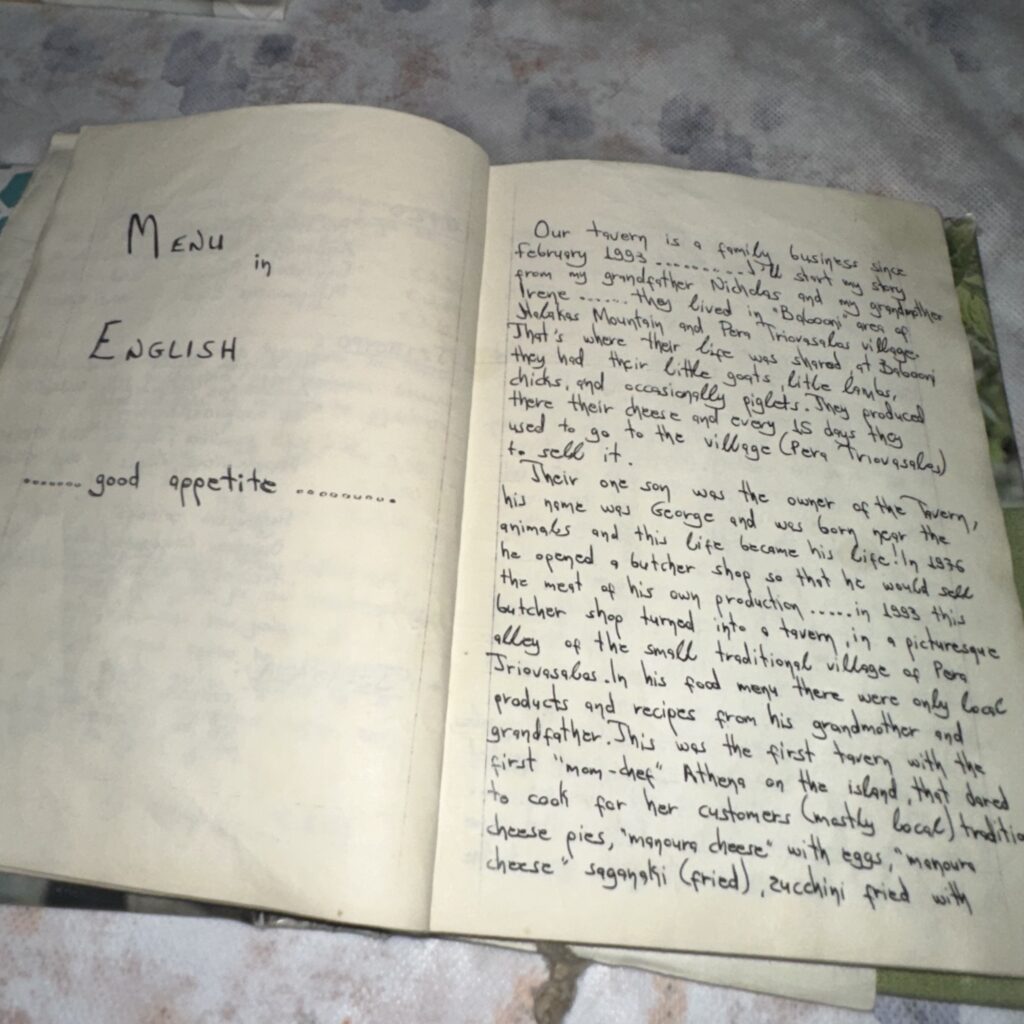 MENU
in
ENGLISH
.......good appetite .........
Our tavern is a family business since
february 1993 ..........I'll start my story
from my grandfather Nicholas and my grandmother
Irene ...... they lived in "Babooni" area of
Halakas Mountain and Pera Triovasalas village.
That's where their life was shared, at Babooni
they had their little goats, litle lambs,
chicks, and occasionally piglets. They produced
there their cheese and every 15 days they
used to go to the village (Pera Triovasalas)
to sell it.
Their one son was the owner of the Tavern,
his name was George and was born near the
animales and this life became his life! In 1976
he opened a butcher shop so that he would sell
the meat of his own production .....in 1993 this
butcher shop turned into a tavern, in a picturesque
alley of the small traditional village of Pera
Triovasalas. In his food menu there were only local
products and recipes from his grandmother and
grandfather. This was the first tavern with the
first "mom-chef" Athena on the island, that dared
to cook for her customers (mostly local) traditio
cheese pies, "manoura cheese" with eggs, "manoura
cheese" saganaki (fried), zucchini fried with